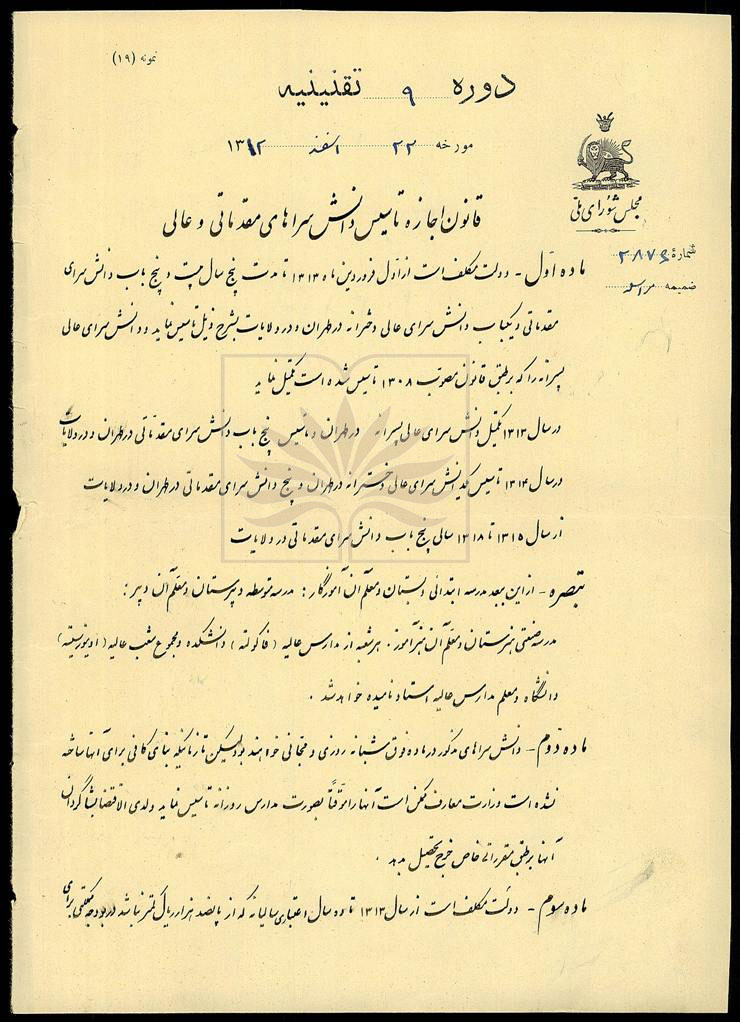 نمونه (۱۹)
دوره ۹ تقنینیه
مورخه ۲۲ اسفند ۱۳۱۲
مجلس شورای ملی
شمارهٔ ۲۸۷۶
ضمیمه
قانون اجازه تاسیس دانش سراهای مقدماتی و عالی
ماده اول - دولت مکلف است از اول فروردین ماه ۱۳۱۳ تا مدت پنج سال بیست و پنج باب دانش سرای
مقدماتی و یکباب دانش سرای عالی دخترانه در طهران و در ولایات بشرح ذیل تاسیس نماید و دانش سرای عالی
پسرانه را که بر طبق قانون مصوب ۱۳۰۸ تاسیس شده است تکمیل نماید
در سال ۱۳۱۳ تکمیل دانش سرای عالی پسرانه در طهران و تاسیس پنج باب دانش سرای مقدماتی در طهران و در ولایات
در سال ۱۳۱۴ تاسیس یک دانش سرای عالی دخترانه در طهران و پنج دانش سرای مقدماتی در طهران و در ولایات
از سال ۱۳۱۵ تا ۱۳۱۸ سالی پنج باب دانش سرای مقدماتی در ولایات
تبصره - از این ببعد مدرسه ابتدائی دبستان و معلم آن آموزگار : مدرسه متوسطه دبیرستان و معلم آن دبیر :
مدرسه صنعتی هنرستان و معلم آن هنرآموز . هر شعبه از مدارس عالیه (فاکولته) دانشکده و مجموع شعب عالیه (اونیورسیته)
دانشگاه و معلم مدارس عالیه استاد نامیده خواهد شد .
ماده دوم - دانش سراهای مذکور در ماده فوق شبانه روزی و مجانی خواهند بود لیکن تا زمانیکه بنای کافی برای آنها ساخته
نشده است وزارت معارف ممکن است آنها را موقتاً بصورت مدارس روزانه تاسیس نماید ولدی الاقتضا بشاگردان
آنها بر طبق مقررات خاص خرج تحصیل بدهد .
ماده سوم - دولت مکلف است از سال ۱۳۱۳ تا ده سال اعتباری سالیانه که از پانصد هزار ریال کمتر نباشد در بودجه مملکتی برای